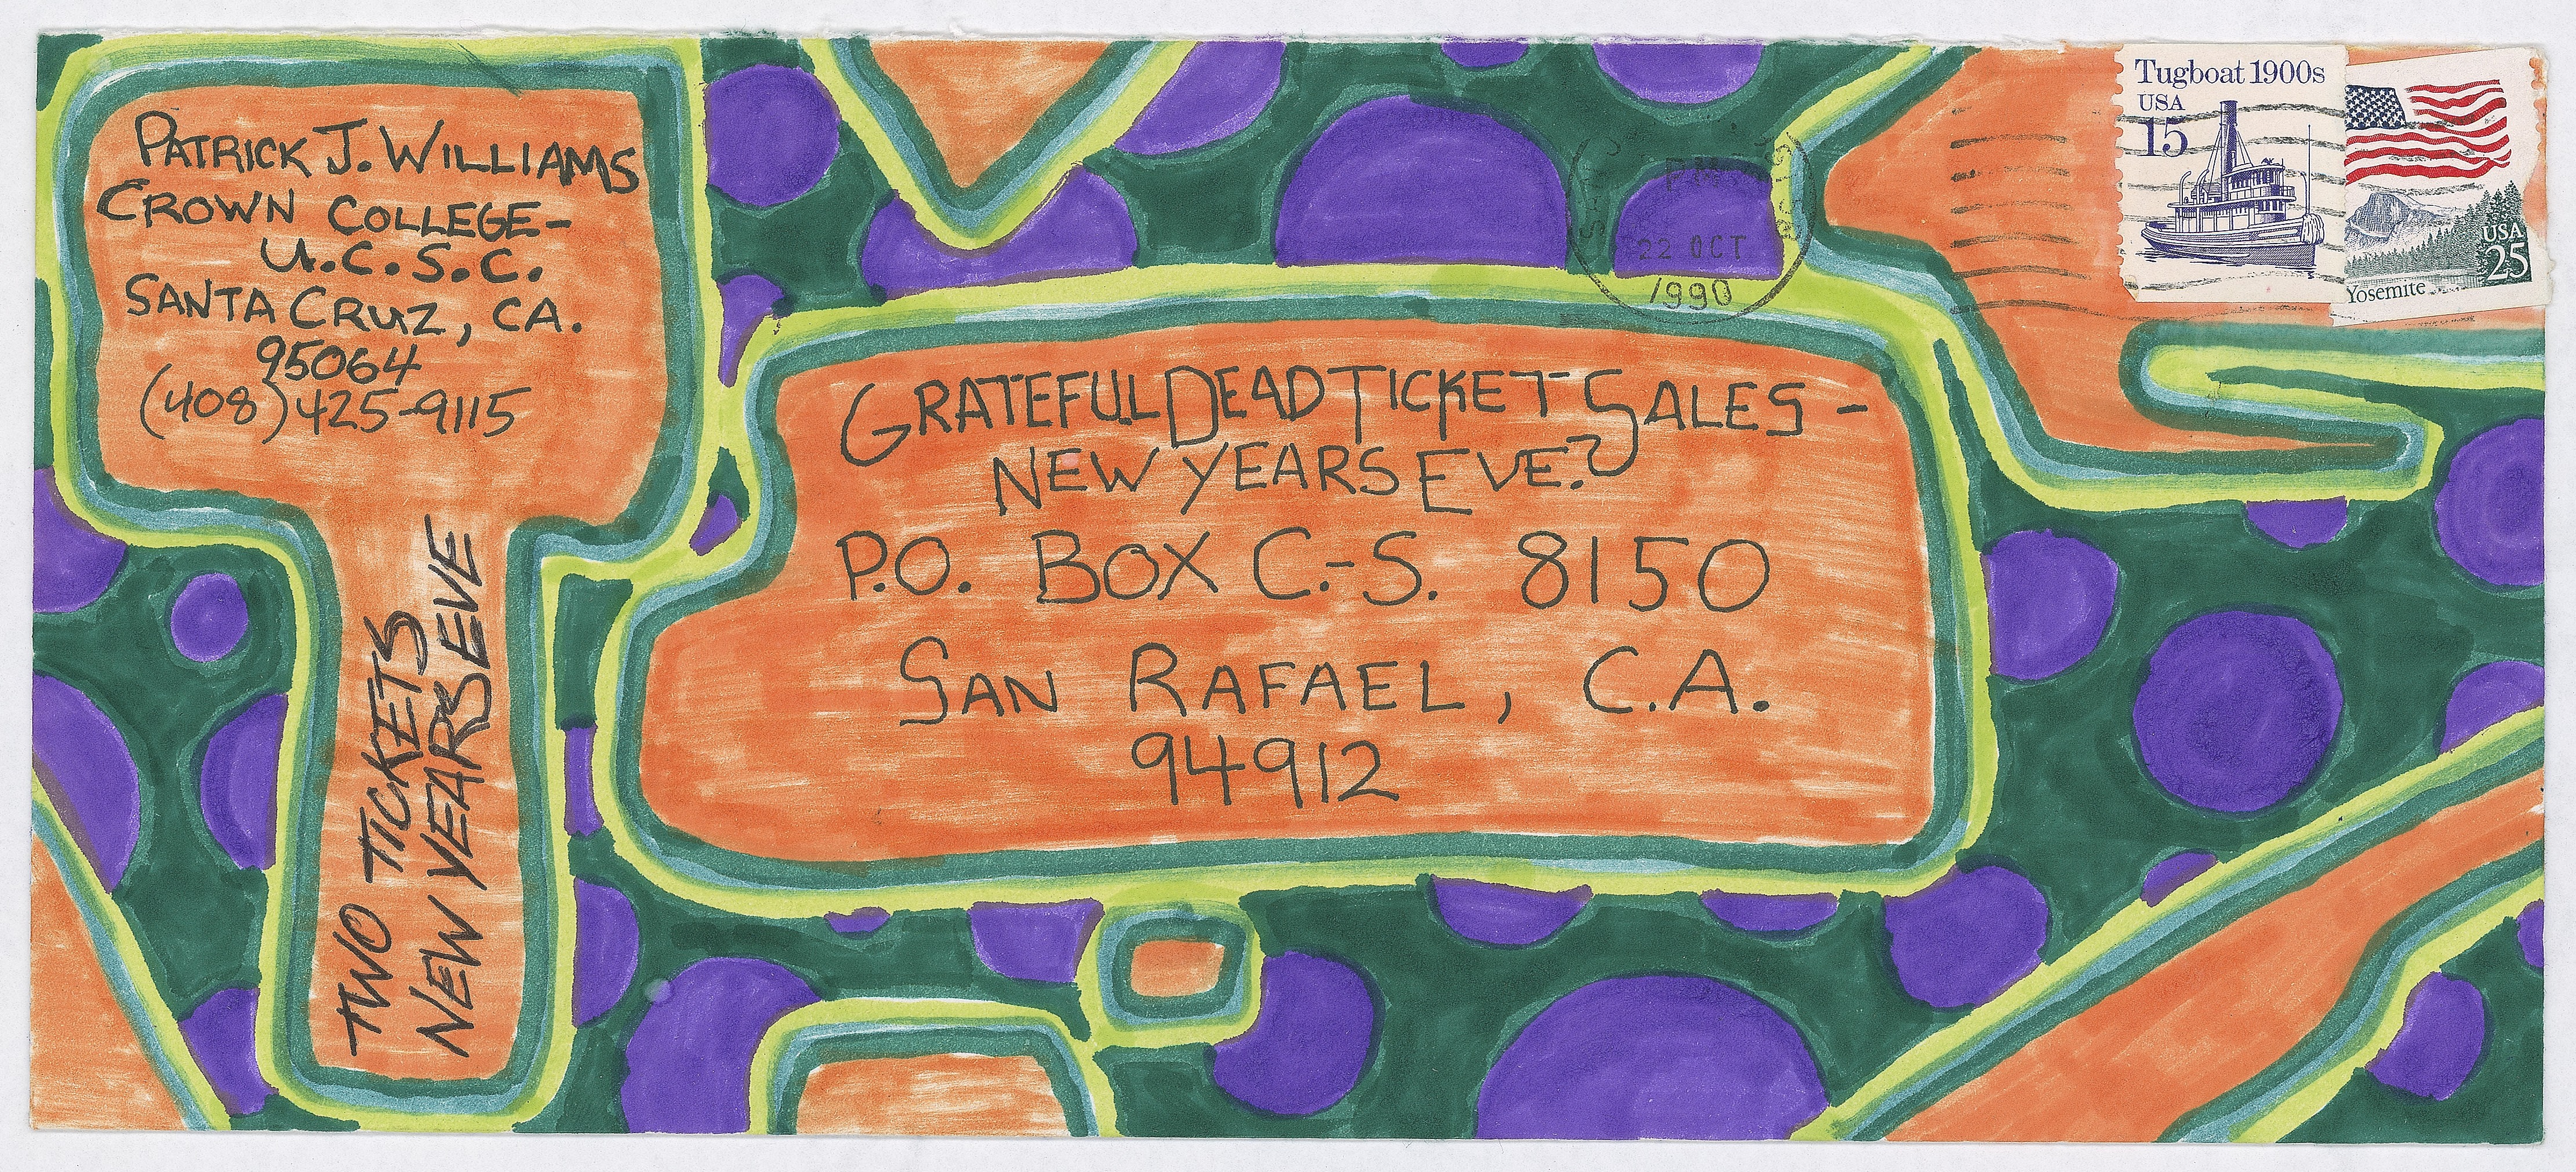 PATRICK J. WILLIAMS
CROWN COLLEGE-
U.C.S.C.
SANTA CRUZ, CA.
95064
(408)425-9115
TWO TICKETS
NEW YEARS EVE
GRATEFUL DEAD TICKET SALES -
NEW YEARS EVE?
P.O. BOX C.-S. 8150
SAN RAFAEL, C.A.
94912
PM
22 OCT
1990
Tugboat 1900s
USA
15
USA
25
Yosemite